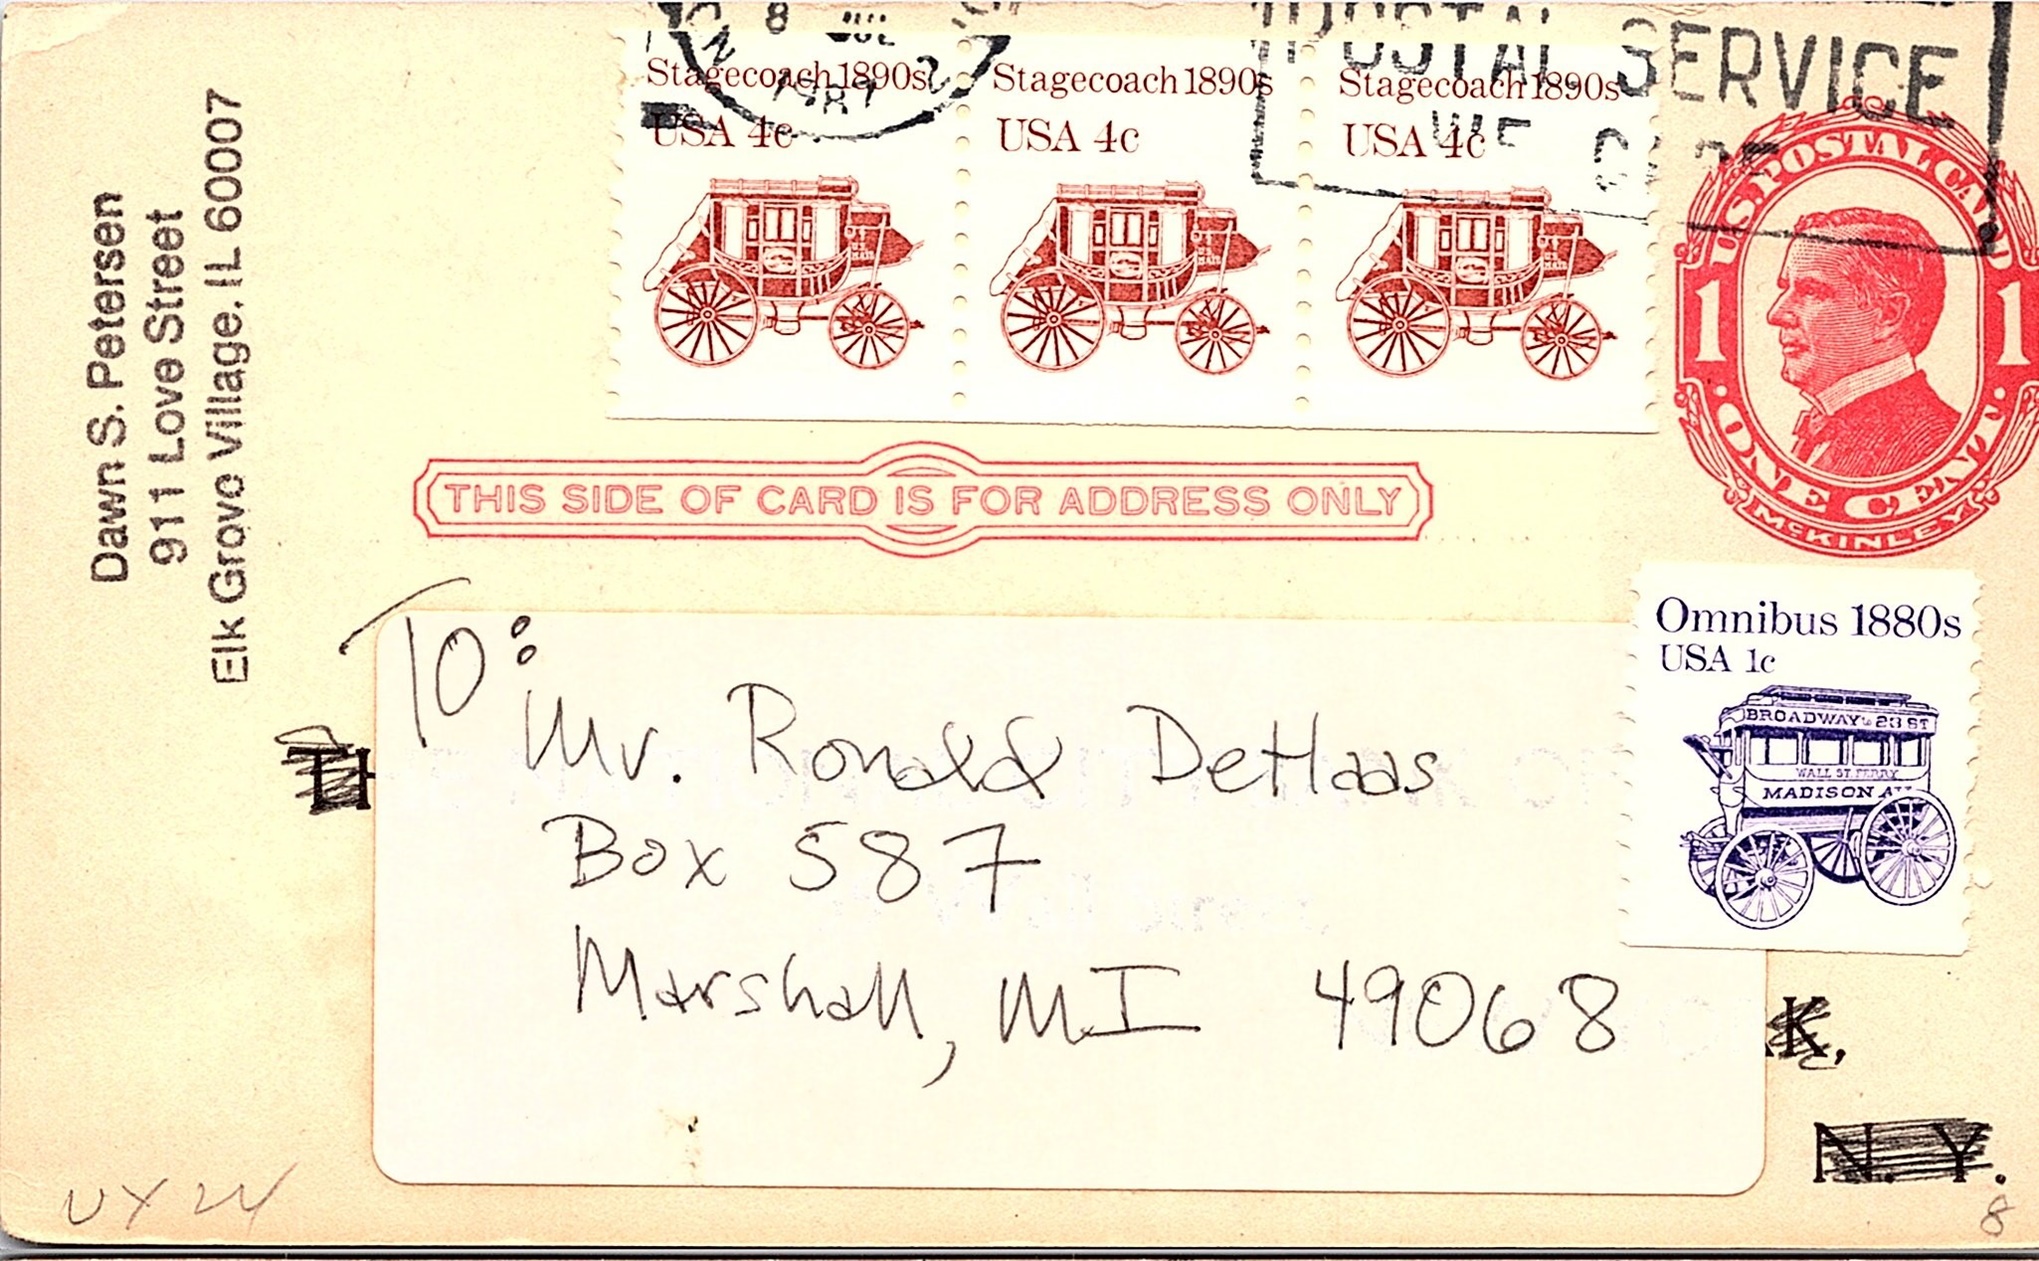 8 JUL
1987
POSTAL SERVICE
WE CARE
Stagecoach 1890s
USA 4c
Stagecoach 1890s
USA 4c
Stagecoach 1890s
USA 4c
U.S. POSTAL CARD
1 1
· ONE CENT ·
McKINLEY
Dawn S. Petersen
911 Love Street
Elk Grove Village, IL 60007
THIS SIDE OF CARD IS FOR ADDRESS ONLY
Omnibus 1880s
USA 1c
BROADWAY & 23 ST
WALL ST. FERRY
MADISON AV
TO:
Mr. Ronald DeHaas
Box 587
Marshall, MI 49068
Wall Street,
K,
N. Y.
UX24
8